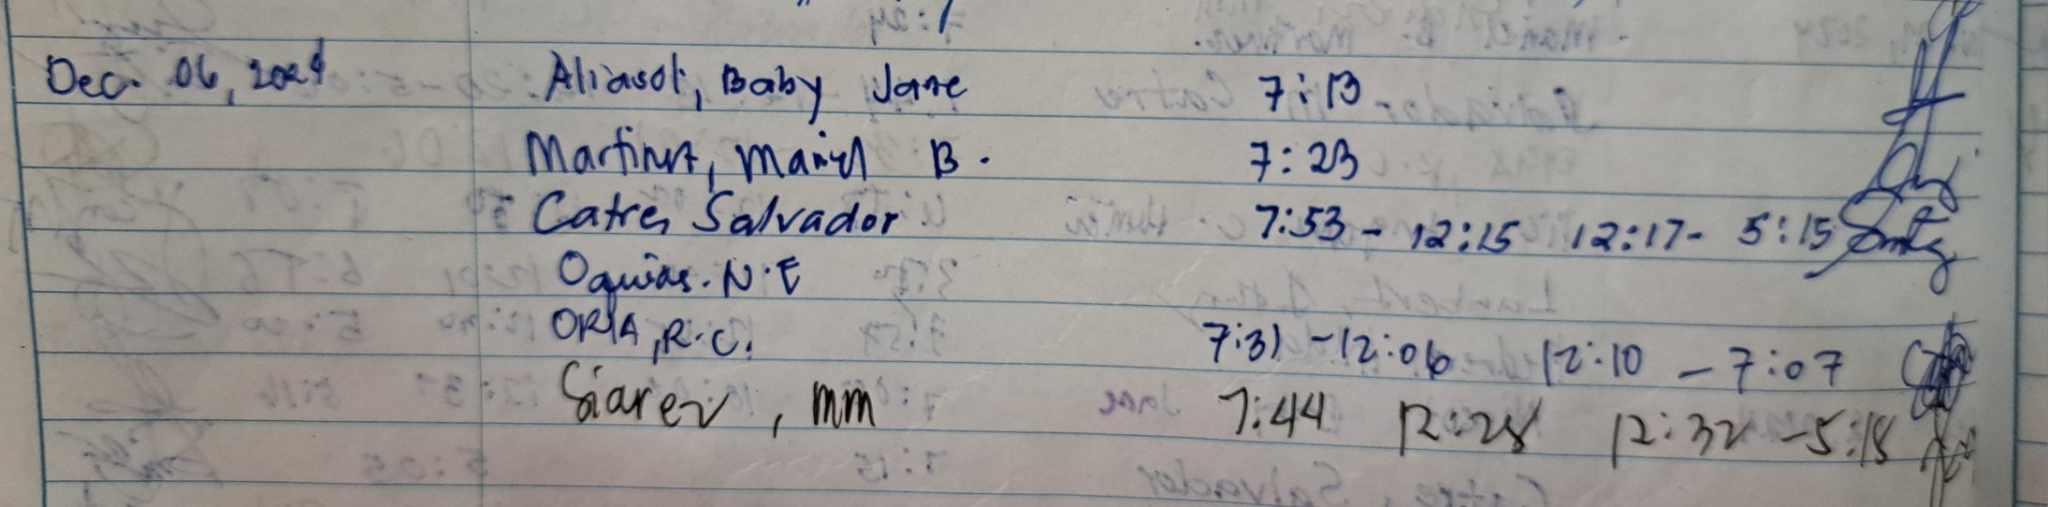 Dec. 06, 2024 Aliasot, Baby Jane 7:13
Martinez, Maricl B. 7:23
Catre, Salvador 7:53 - 12:15 12:17 - 5:15
Oquias. N.E
ORIA, R.C. 7:31 - 12:06 12:10 - 7:07
Siarez, mm 7:44 12:28 12:32 - 5:18